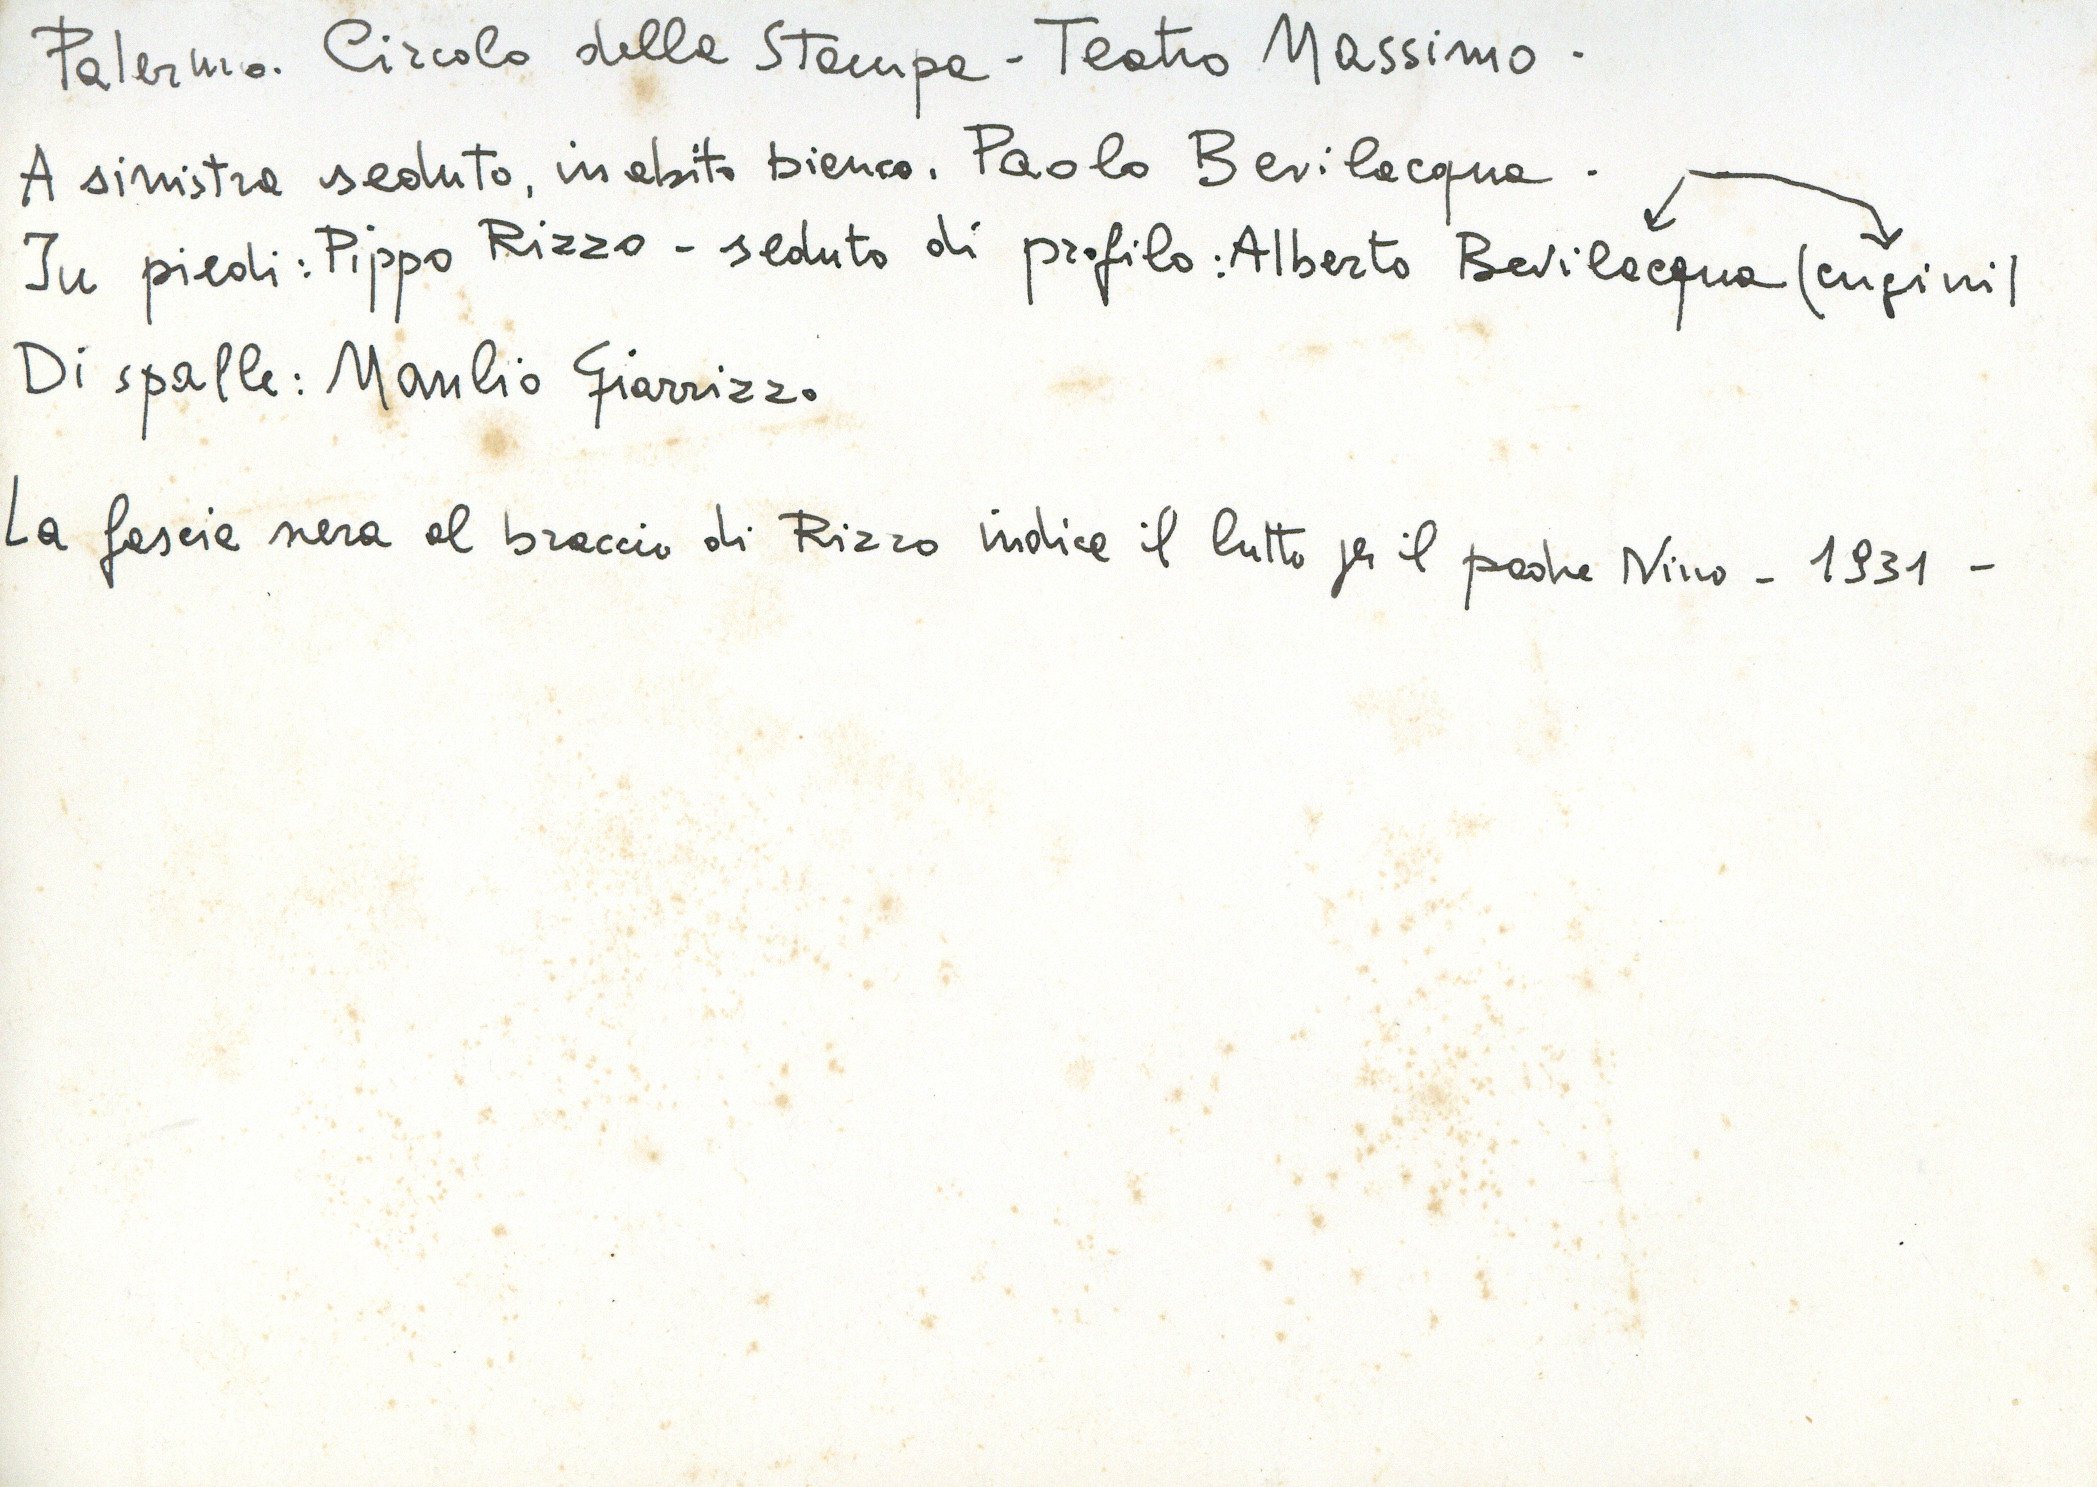 Palermo. Circolo della Stampa - Teatro Massimo -
A sinistra seduto, in abito bianco. Paolo Bevilacqua.
In piedi: Pippo Rizzo - seduto di profilo: Alberto Bevilacqua (cugini)
Di spalle: Manlio Giarrizzo
La fascia nera al braccio di Rizzo indica il lutto per il padre Nino - 1931 -